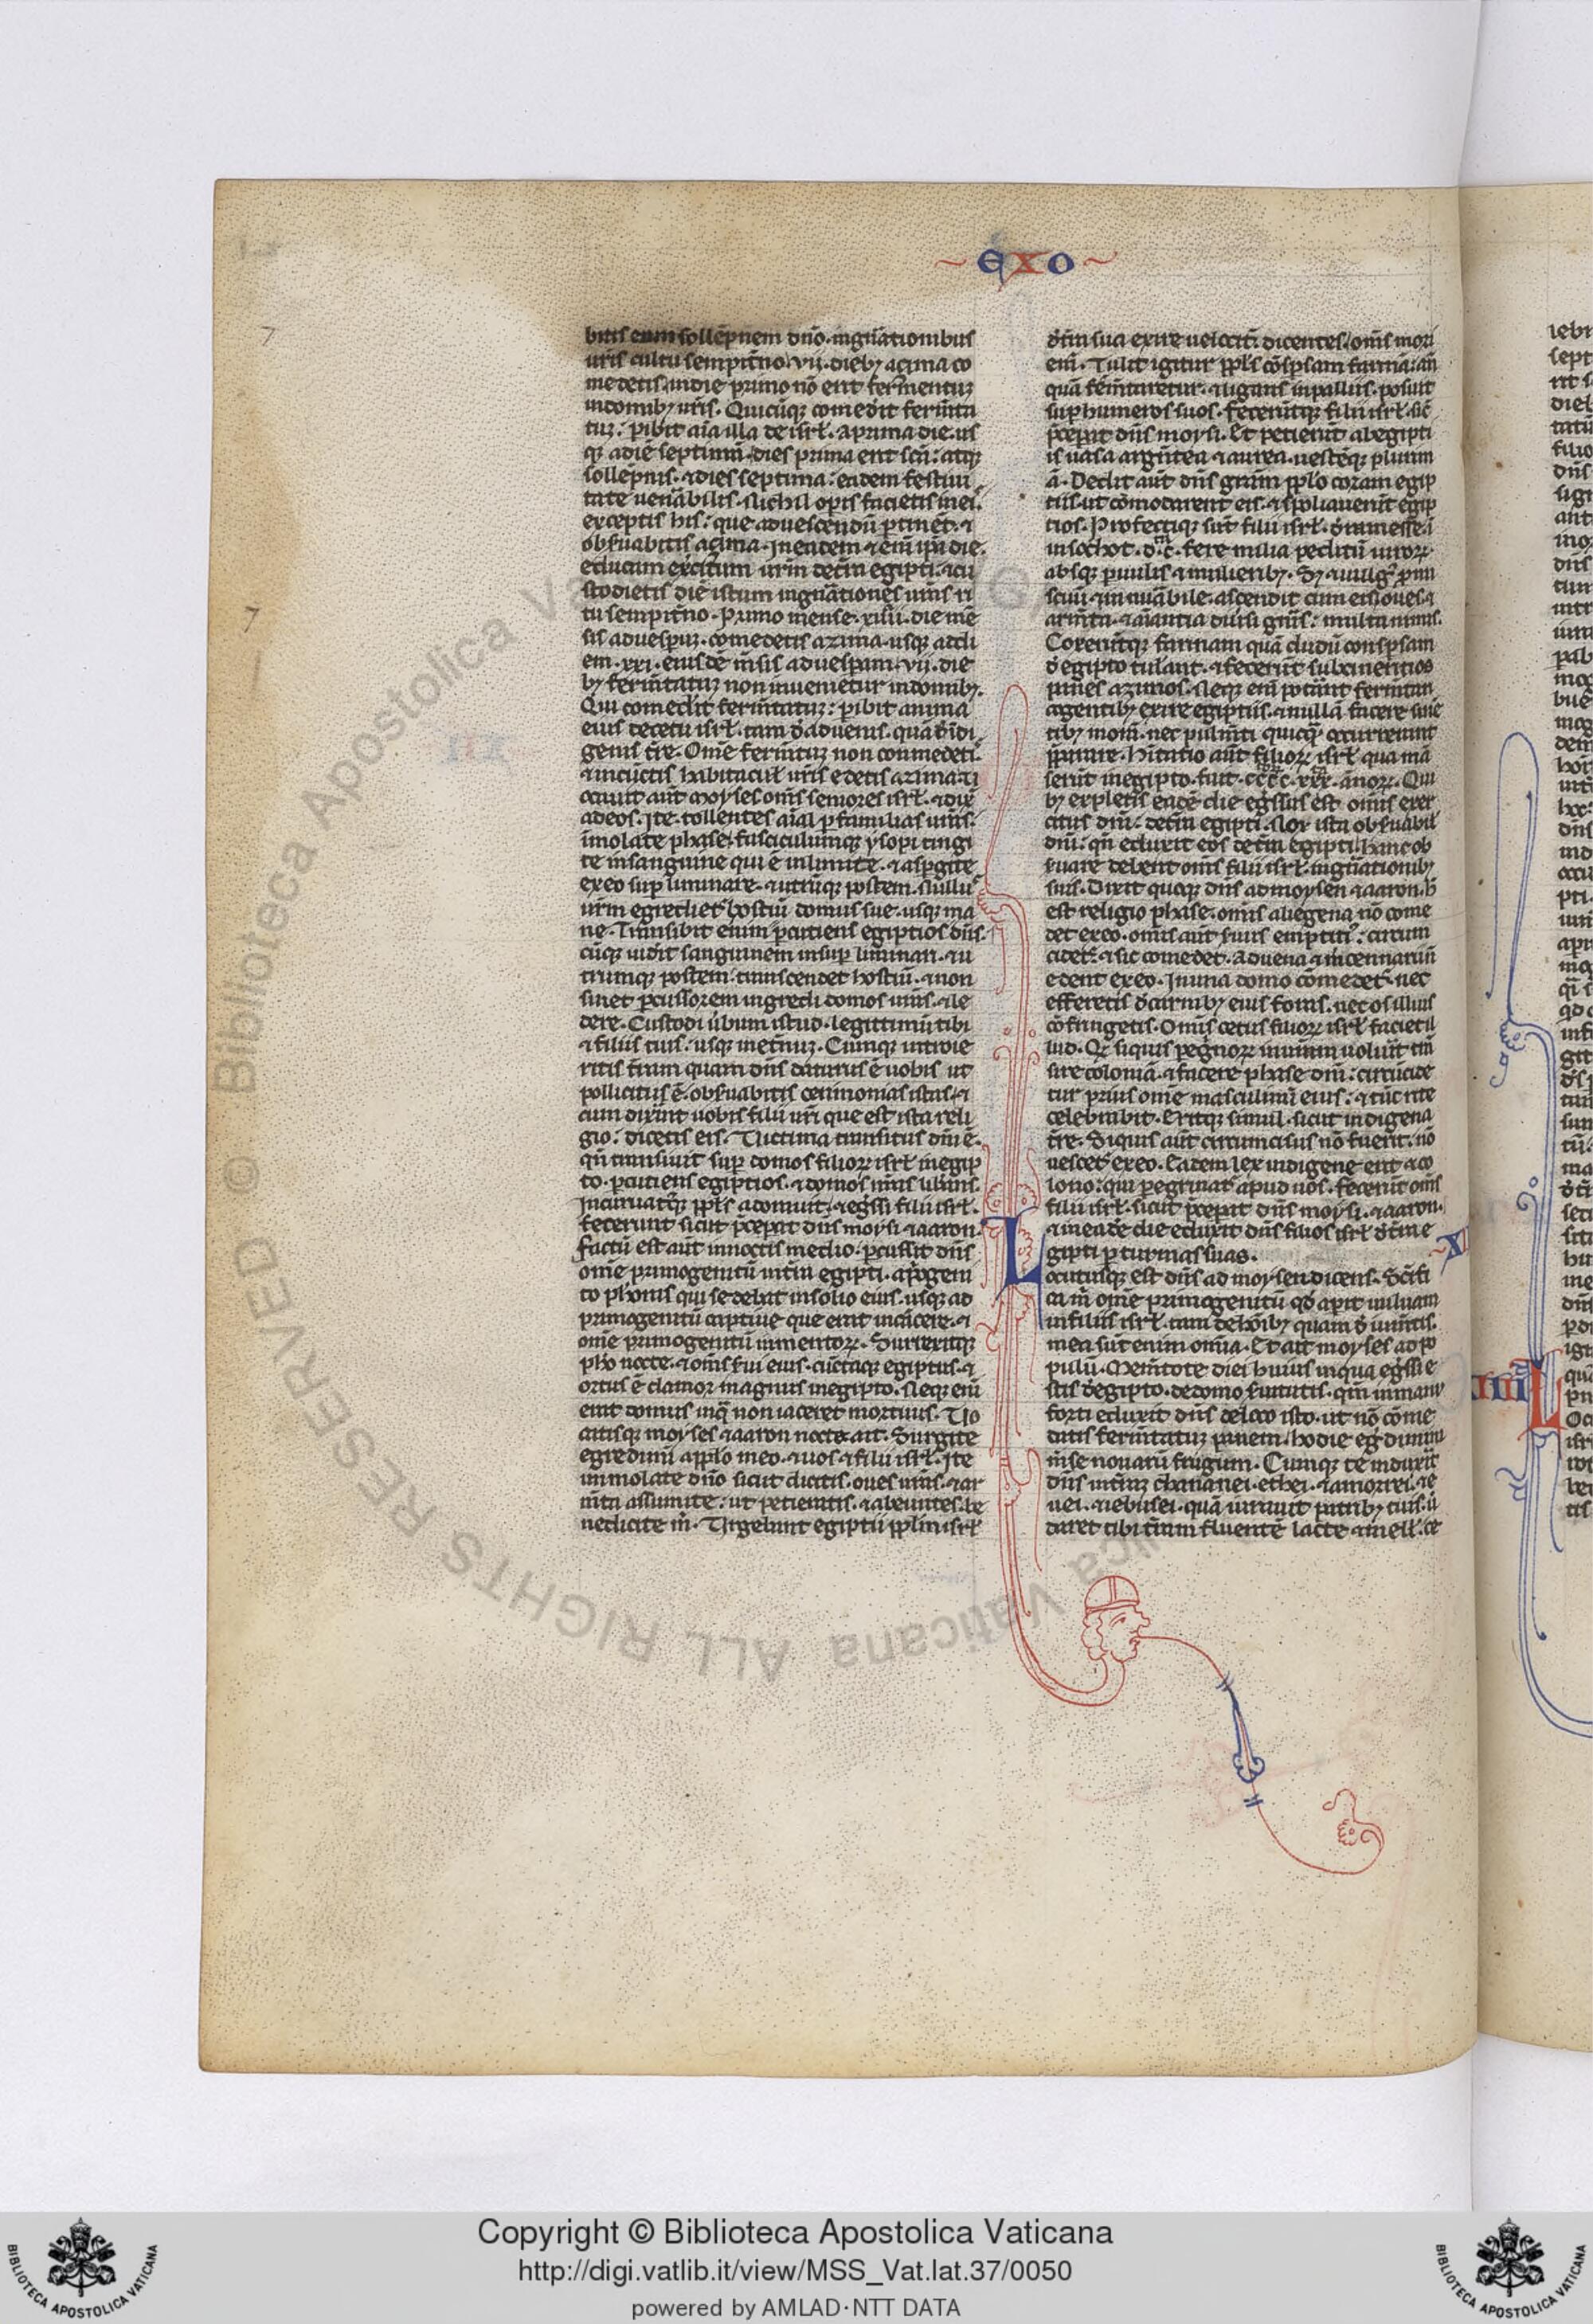 exo
bitis eum sollēpnem dño. ingñationibus
uris cultu sempitño. vii. dieb; açima co
medetis. indie primo nō erit fermentuz
indomib; uris. Quicūq; comedit fermta
tuz: pibit aīa illa de isrł. a prima die us
q; adiē septimū. dies prima erit scā: atq;
sollēpnis. ⁊ dies septima: eadem festiui
tate uenābilis. Nichil opis facietis inei.
exceptis his: que aduescendū ptinēt. ⁊
obſuabitis açima. In eadem ⁊ enī ipa die.
educam excitum urm detra egipti. ⁊ cu
stodietis diē istum ingñationes uras ri
tu sempitño. Primo mense. xiiii. die mē
sis aduesperuz. comedetis azima. usq; addi
em. xxi. eiusdē msis aduespam. vii. die
b; fermtatuz non inuenietur indomib;.
Qui comedit fermtatuz: pibit anima
eius decetu isrł. tam d aduenis. quā d idi
genis tre. Ome fermtuz non conmedeti.
⁊ incūctis habitacul uris edetis azima. U
ocauit aut moyses oms seniores isrł. ⁊ dix
adeos. Ite tollentes aīal p familias uras:
imolate phase. fasciculumq; ysopi tingi
te insanguine qui ē inlimite. ⁊ aspgite
exeo sup liminare. ⁊ utrūq; postem. Nullu
urm egrediet hostiū domus sue. usq; ma
ne. Transibit enim pcutiens egiptios dns.
cūq; uidit sanguinem insup liminari. ⁊ u
trumq; postem: transcendet hostiū. ⁊ non
sinet pcussorem ingredi domos uras. ⁊ le
dere. Custodi ubum istud. legittimū tibi
⁊ filiis tuis: usq; metnuz. Cumq; introie
ritis tram quam dns daturus ē uobis ut
pollicitus ē. obſuabitis cerimonias istas. ⁊
cum dixint uobis filii uri que est ista reli
gio: dicetis eis. Uictima transitus dm ē.
qñ transiuit sup domos filior isrł inegip
to. pcutiens egiptios. ⁊ domos nras libans.
Incuruatq; ppls adorauit. ⁊ egssi filii isrł.
fecerunt sicut pcepat dns moysi ⁊ aaron.
Factū est aut innoctis medio. pcussit dns
ome primogenitū intra egipti. a pogeni
to phonis qui sedebat insolio eius. usq; ad
primogenitū captiue que erat incarcere. ⁊
ome primogenitū iumentor. Surrexitq;
pho nocte. ⁊ oms ſui eius. cūctaq; egiptus. ⁊
ortus ē clamor magnus inegipto. Neq; enī
erat domus inq non iaceret mortuus. Uo
catisq; moyses ⁊ aaron nocte. ait. Surgite
egredimi a pplo meo. ⁊ uos ⁊ filii isrł. Ite
immolate dño sicut dicitis. oues uras. ⁊ ar
mta assumite: ut petieratis. ⁊ abeuntes. be
nedicite m. Urgebant egiptii pplm isrł
dtra sua exire uelocit: dicentes. oms mori
em. Tulit igitur ppls cospsam farinā: añ
quā fermtaretur. ⁊ ligans inpalliis. posuit
sup humeros suos. feceruntq; filii isrł. sic
pcepat dns moysi. Et petierūt abegipti
is uasa argntea ⁊ aurea. uestēq; plurim
ā. Dedit aut dns gram pplo coram egip
tiis. ut cōmodarent eis. ⁊ spoliauerūt egip
tios. Profectiq; sūt filii isrł. d ramesse. i
insochot. dc. fere milia peditū uiror.
absq; puulis ⁊ mulierib;. Sz ⁊ uulg pmi
scuū ⁊ innuābile. ascendit cum eis. oues ⁊
armta. ⁊ aiantia diuisi gnis: multa nimis.
Coxeruntq; farinam quā dudū conspsam
d egipto tulant. ⁊ fecerūt subcineritios
panes azimos. Neq; enī potant fermtari
cogentib; exire egiptiis. ⁊ nullā facere sine
tib; moram. nec pulmti quicq; occurrerant
pparare. Hitatio aut filior isrł qua mā
serūt inegipto. fuit. cccc. xxx. anor. Qui
b; expletis eadē die egssus est omis exer
citus dm: detra egipti. Nox ista obſuabil
dm: qñ eduxit eos detra egipti. hanc ob
ſuare debent oms filii isrł. ingñationib;
suis. Dixit quoq; dns admoysen ⁊ aaron. h
est religio phase. omis aliegena nō come
det exeo. omis aut ſuus emptiti: circum
cidet: ⁊ sic comedet. Aduena ⁊ mcennarius
edent exeo. In una domo cōmedet. nec
efferetis d carnib; eius foras. nec os illius
cōfringetis. Omis cetus filior isrł faciet il
lud. Qz siquis pegnor inuram uoluit tra
sire coloniā. ⁊ facere phase dm: circūcide
tur prius ome masculinū eius: ⁊ tūc rite
celebrabit. Eritq; simul. sicut indigena
tre. Siquis aut circumcisus nō fuerit. nō
uescet exeo. Eadem lex indigene erit ⁊ co
lono: qui pegrinat apud uos. Fecerūt oms
filii isrł. sicut pcepat dns moysi. ⁊ aaron.
⁊ ineadē die eduxit dns filios isrł dtra e
gipti p turmas suas.
Locutusq; est dns ad moysen dicens. Scifi
ca m ome primogenitū qd apit uuluam
infiliis isrł. tam dehoib; quam d iumtis.
mea sūt enim omia. Et ait moyses ad po
pulū. Memtote diei huius inqua egssi e
stis degipto. dedomo ſuitutis. qm inmanu
forti eduxit dns deloco isto. ut nō cōme
datis fermtatuz panem. hodie egdimini
mse nouarū frugum. Cumq; te induxit
dns intraz chananei. ethei. ⁊ amorrei. ⁊ e
uei. ⁊ iebusei. quā iurauit patrib; tuis. ū
daret tibi tram fluentē lacte ⁊ mell. ce
Copyright © Biblioteca Apostolica Vaticana
http://digi.vatlib.it/view/MSS_Vat.lat.37/0050
powered by AMLAD·NTT DATA
© Biblioteca Apostolica Vaticana ALL RIGHTS RESERVED
BIBLIOTECA APOSTOLICA VATICANA
BIBLIOTECA APOSTOLICA VATICANA